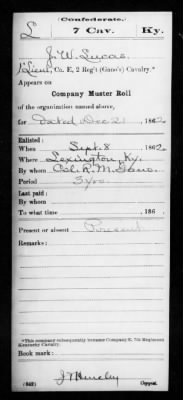 Confederate.
L 7 Cav. Ky.
J. W. Lucas
1 Lieut, Co. E, 2 Reg't (Gano's) Cavalry.*
Appears on
Company Muster Roll
of the organization named above,
for Dated Dec 21, 1862.
Enlisted:
When Sept. 8, 1862.
Where Lexington, Ky.
By whom Col. R. M. Gano.
Period 3 yrs.
Last paid:
By whom
To what time , 186 .
Present or absent Present
Remarks:
*This company subsequently became Company E, 7th Regiment
Kentucky Cavalry.
Book mark:
(642) Copyist.